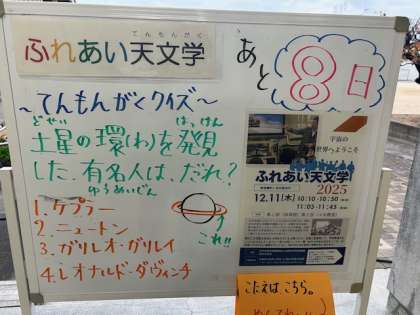 てんもんがく
ふれあい天文学
あと
8日
～てんもんがくクイズ～
どせい
はっけん
土星の環(わ)を発見
した、有名人は、だれ?
ゆうめいじん
1.ケプラー
2.ニュートン
3.ガリレオ・ガリレイ
4.レオナルド・ダヴィンチ
これ!!
宇宙の
世界へようこそ
ふれあい天文学
2025
12.11(木)
10:10-10:50
11:05-11:45
こたえはこちら。